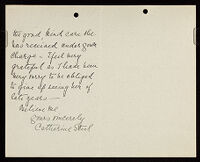 the good kind care she
has received under your
charge - I feel very
grateful as I have been
very sorry to be obliged
to give up seeing her of
late years -
Believe me
yours sincerely
Catherine